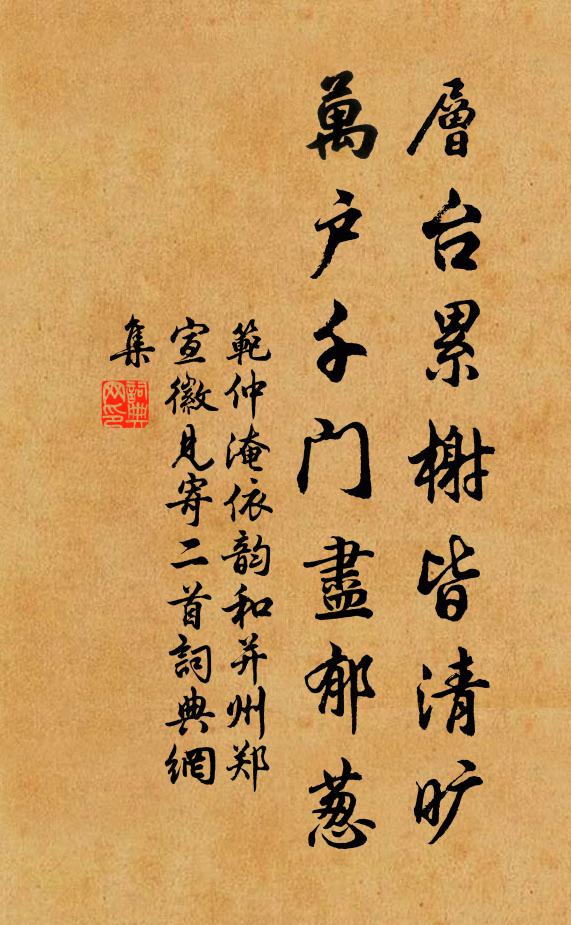 層台累榭皆清旷
萬户千门盡郁葱
範仲淹依韵和并州郑
宣徽見寄二首詞典網
集
詞典网印